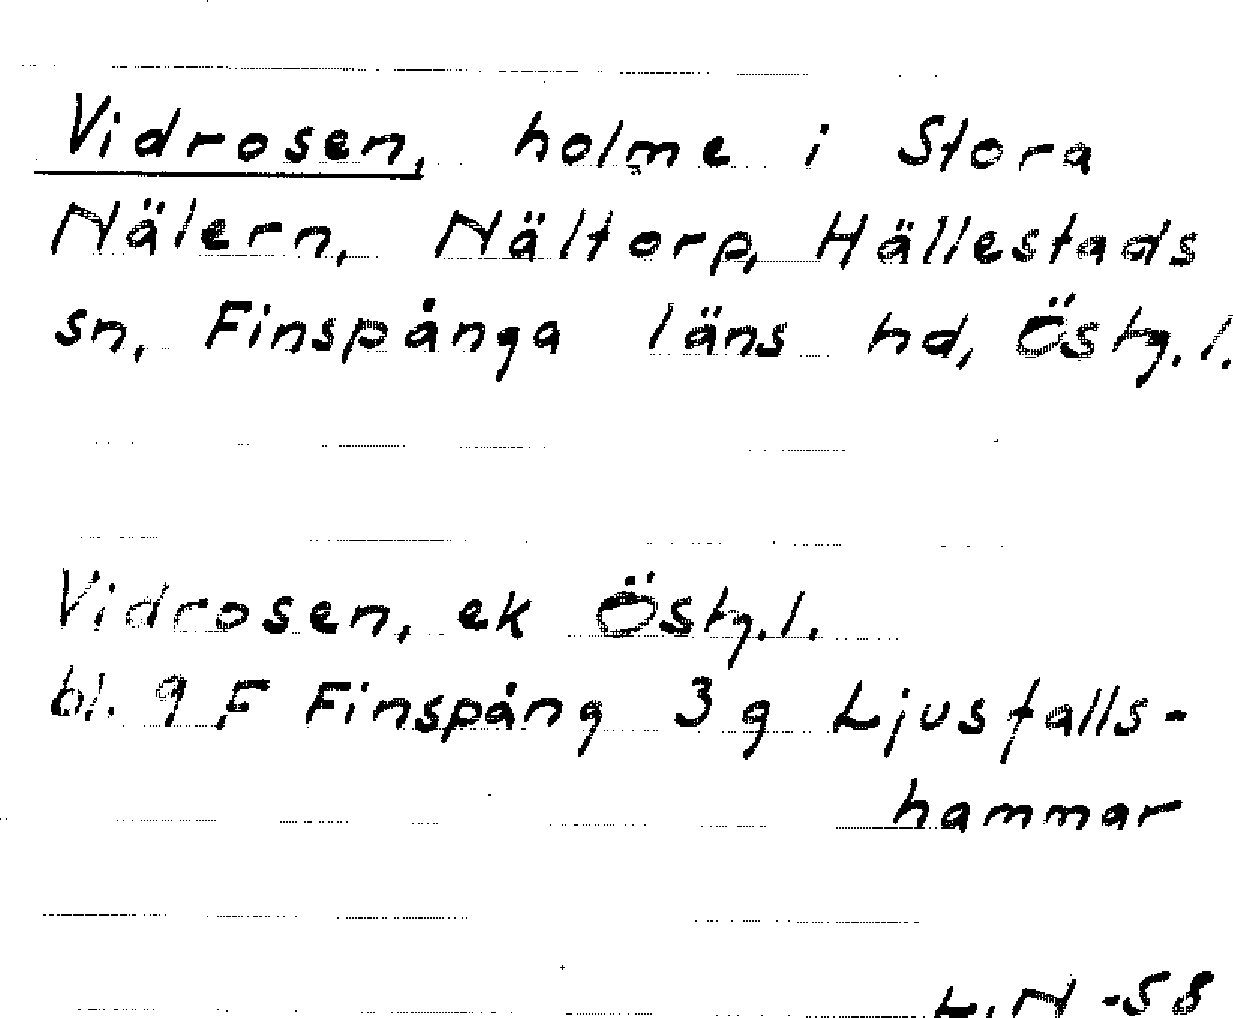 Vidrosen, holme i Stora
Nälern, Nältorp, Hällestads
sn, Finspånga läns hd, Östg.l.
Vidrosen, ek Östg.l.
bl. 9 F Finspång 3 g Ljusfalls-
hammar
L.N -58